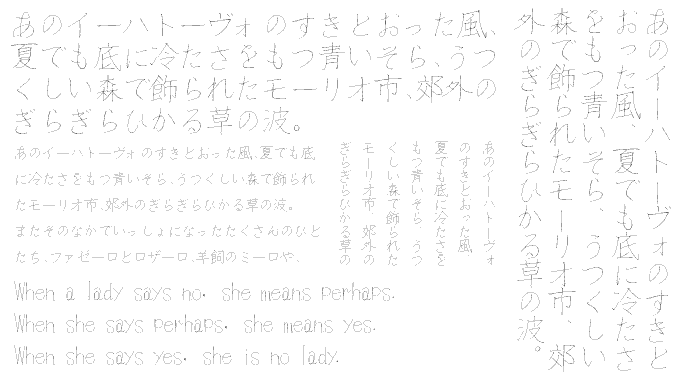 あのイーハトーヴォのすきとおった風、
夏でも底に冷たさをもつ青いそら、うつ
くしい森で飾られたモーリオ市、郊外の
ぎらぎらひかる草の波。
あのイーハトーヴォのすきとおった風、夏でも底
に冷たさをもつ青いそら、うつくしい森で飾られ
たモーリオ市、郊外のぎらぎらひかる草の波。
またそのなかでいっしょになったたくさんのひと
たち、ファゼーロとロザーロ、羊飼のミーロや、
When a lady says no. she means perhaps.
When she says perhaps. she means yes.
When she says yes. she is no lady.
あのイーハトーヴォ
のすきとおった風、
夏でも底に冷たさを
もつ青いそら、うつ
くしい森で飾られた
モーリオ市、郊外の
ぎらぎらひかる草の
あのイーハトーヴォのすきと
おった風、夏でも底に冷たさ
をもつ青いそら、うつくしい
森で飾られたモーリオ市、郊
外のぎらぎらひかる草の波。